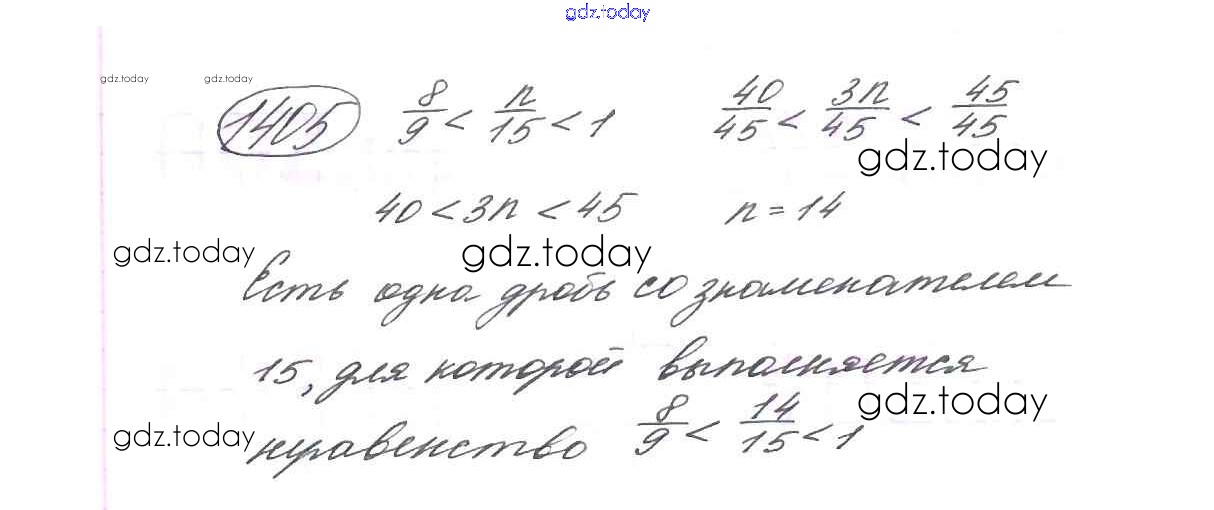 gdz.today
gdz.today gdz.today
1405 8/9 < n/15 < 1 40/45 < 3n/45 < 45/45
gdz.today
40 < 3n < 45 n = 14
gdz.today gdz.today
Есть одна дробь со знаменателем
15, для которой выполняется
gdz.today
неравенство 8/9 < 14/15 < 1
gdz.today